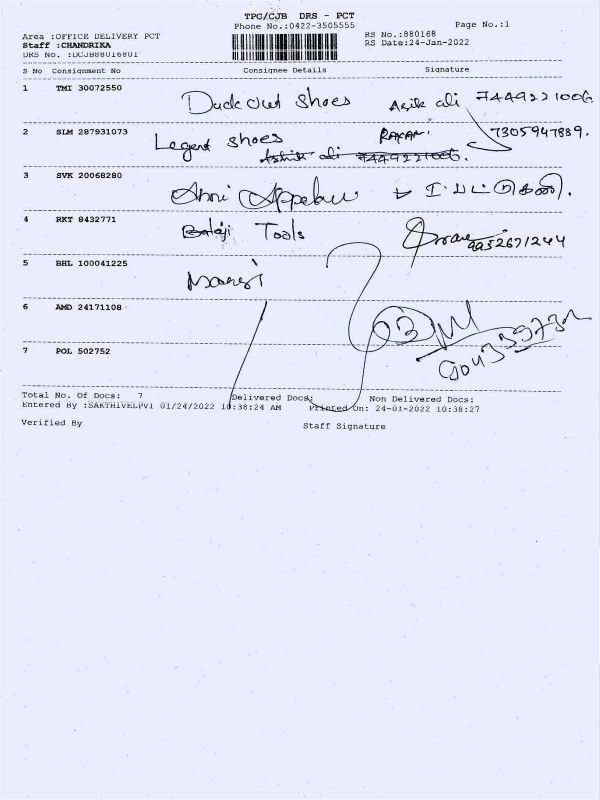 TPC/CJB DRS - PCT
Phone No.:0422-3505555
Page No.:1
Area :OFFICE DELIVERY PCT
RS No.:880168
Staff :CHANDRIKA
RS Date:24-Jan-2022
DRS No. :DCJB88016801
S No Consignment No Consignee Details Signature
1 TMI 30072550 Duck out shoes Asik ali 7449221006
2 SLM 287931073 Legend shoes 7305947889.
Ashik ali 7449221006.
3 SVK 20068280
4 RKT 8432771 Balaji Tools 9952671244
5 BHL 100041225
6 AMD 24171108
7 POL 502752
Total No. Of Docs: 7 Delivered Docs: Non Delivered Docs:
Entered By :SAKTHIVELPV1 01/24/2022 10:38:24 AM Printed On: 24-01-2022 10:38:27
Verified By Staff Signature